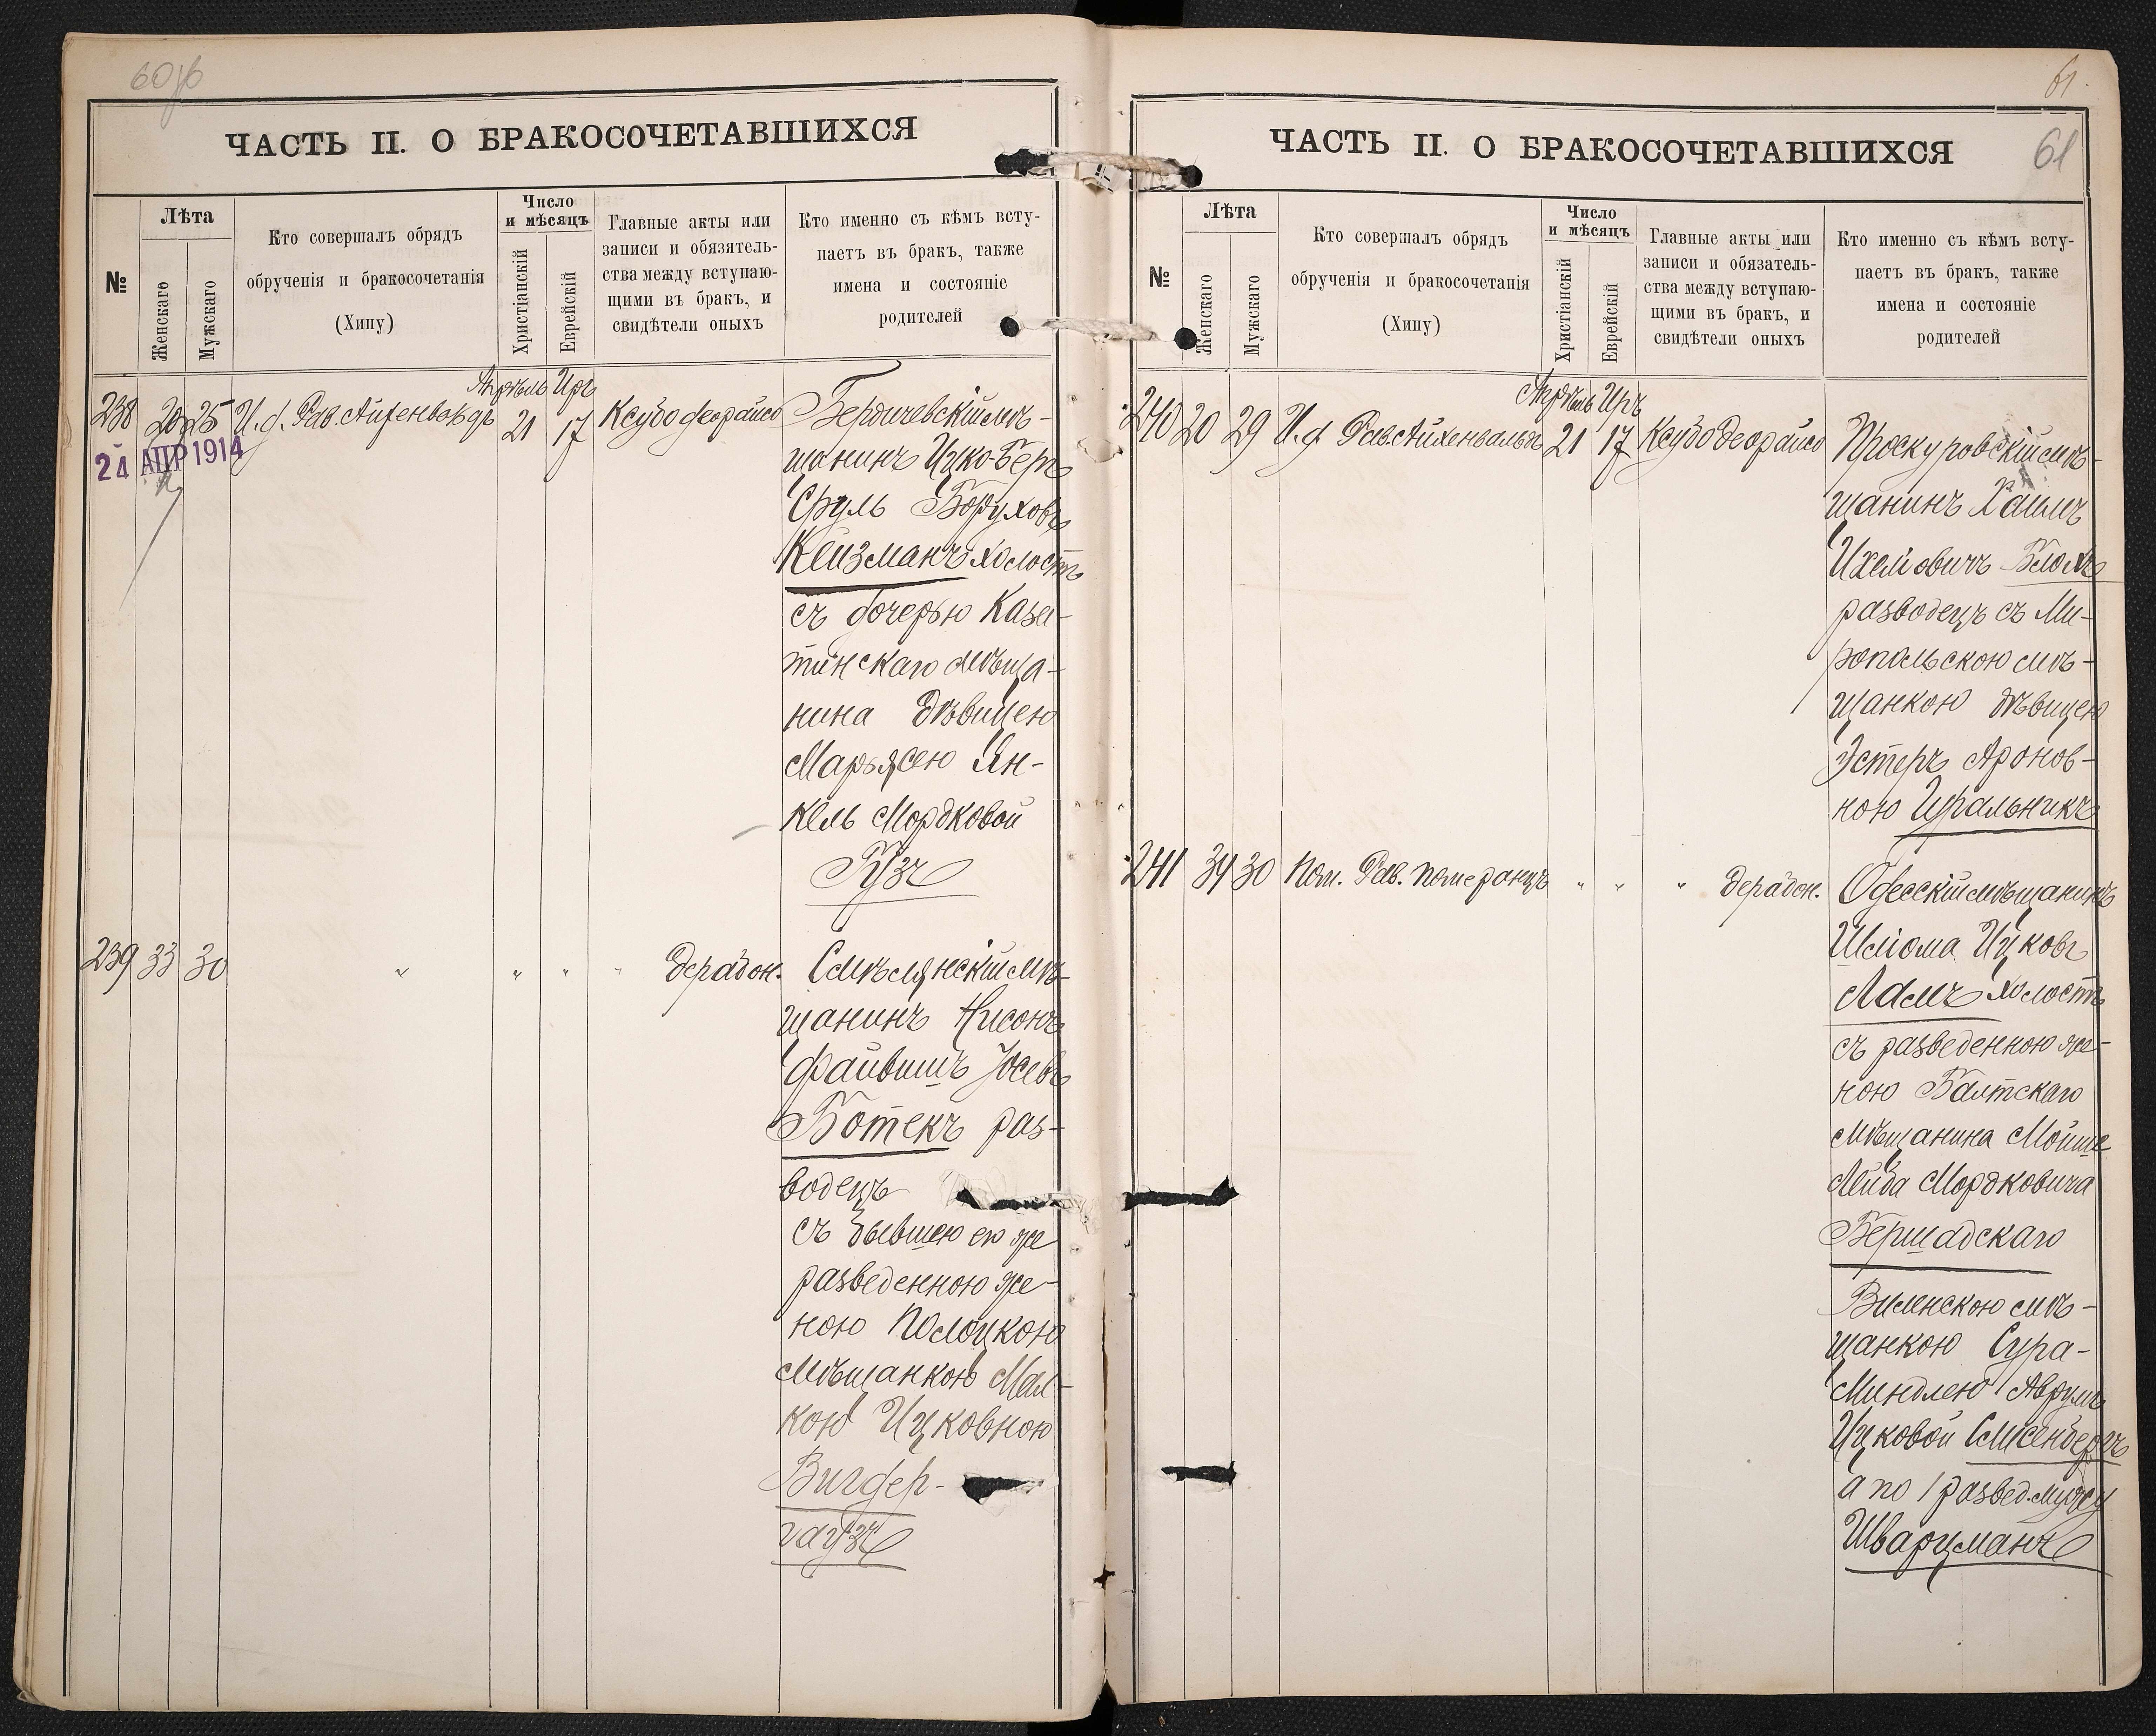 60об
ЧАСТЬ II. О БРАКОСОЧЕТАВШИХСЯ
№
Лѣта
Женскаго
Мужскаго
Кто совершалъ обрядъ
обрученія и бракосочетанія
(Хипу)
Число
и мѣсяцъ
Христіанскій
Еврейскій
Главные акты или
записи и обязатель-
ства между вступаю-
щими въ бракъ, и
свидѣтели оныхъ
Кто именно съ кѣмъ всту-
паетъ въ бракъ, также
имена и состояніе
родителей
Апрѣль Иръ
238 20 25 И.д. Рав. Айхенвальдъ 21 17 Ксубо деорайсо Бердичевскій мѣ-
24 АПР 1914
щанинъ Ицко-Беръ
Сруль Боруховъ
Клизманъ холостъ
съ дочерью Каза-
тинскаго мѣща-
нина дѣвицею
Марьясею Ян-
кель Мордковой
Гузъ
239 33 30 " " " " дерабон. Смѣлянскій мѣ-
щанинъ Нисонъ
Файвишъ Іосевъ
Ботекъ раз-
водецъ
съ бывшею его же
разведенною же-
ною Полоцкою
мѣщанкою Мал-
кою Ицковною
Вигдер-
гаузъ
61.
61
ЧАСТЬ II. О БРАКОСОЧЕТАВШИХСЯ
№
Лѣта
Женскаго
Мужскаго
Кто совершалъ обрядъ
обрученія и бракосочетанія
(Хипу)
Число
и мѣсяцъ
Христіанскій
Еврейскій
Главные акты или
записи и обязатель-
ства между вступаю-
щими въ бракъ, и
свидѣтели оныхъ
Кто именно съ кѣмъ всту-
паетъ въ бракъ, также
имена и состояніе
родителей
Апрѣль Иръ
240 20 29 И.д Рав. Айхенвальдъ 21 17 Ксубо деорайсо Проскуровскій мѣ-
щанинъ Хаимъ
Ихелiовичъ Блохъ
разводецъ съ Ми-
ропольскою мѣ-
щанкою дѣвицею
Эстеръ Аронов-
ною Игральникъ
241 34 30 Пом. Рав. Померанцъ " " " дерабон. Одесскій мѣщанинъ
Шліома Ицковъ
Ламъ холостъ
съ разведенною же-
ною Балтскаго
мѣщанина Мойше
Лейба Мордковича
Бершадскаго
Виленскою мѣ-
щанкою Сура-
Миндлею Аврумъ
Ицковой
а по 1 развед. мужу
Шварцманъ